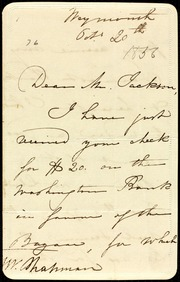 Weymouth
Oct. 20th
1856
26
Dear Mr. Jackson,
I have just
received your check
for $20. on the
Washington Bank
in favour of the
Bazaar, for which
W. Chapman